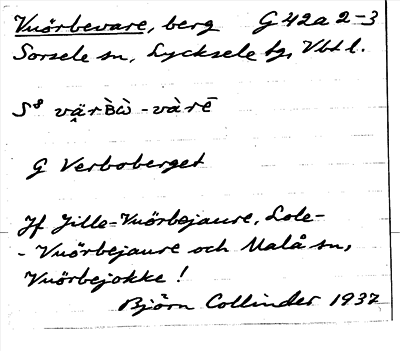 Vuörbevare, berg G 42a 2-3
Sorsele sn, Lycksele tg, Vbtl.
S8 vạ̈rʙ̀ὼ -và̀rē
G Verboberget
Jf Jille-Vuörbejaure, Lole-
- Vuörbejaure och Malå sn,
Vuörbejokke !
Björn Collinder 1937